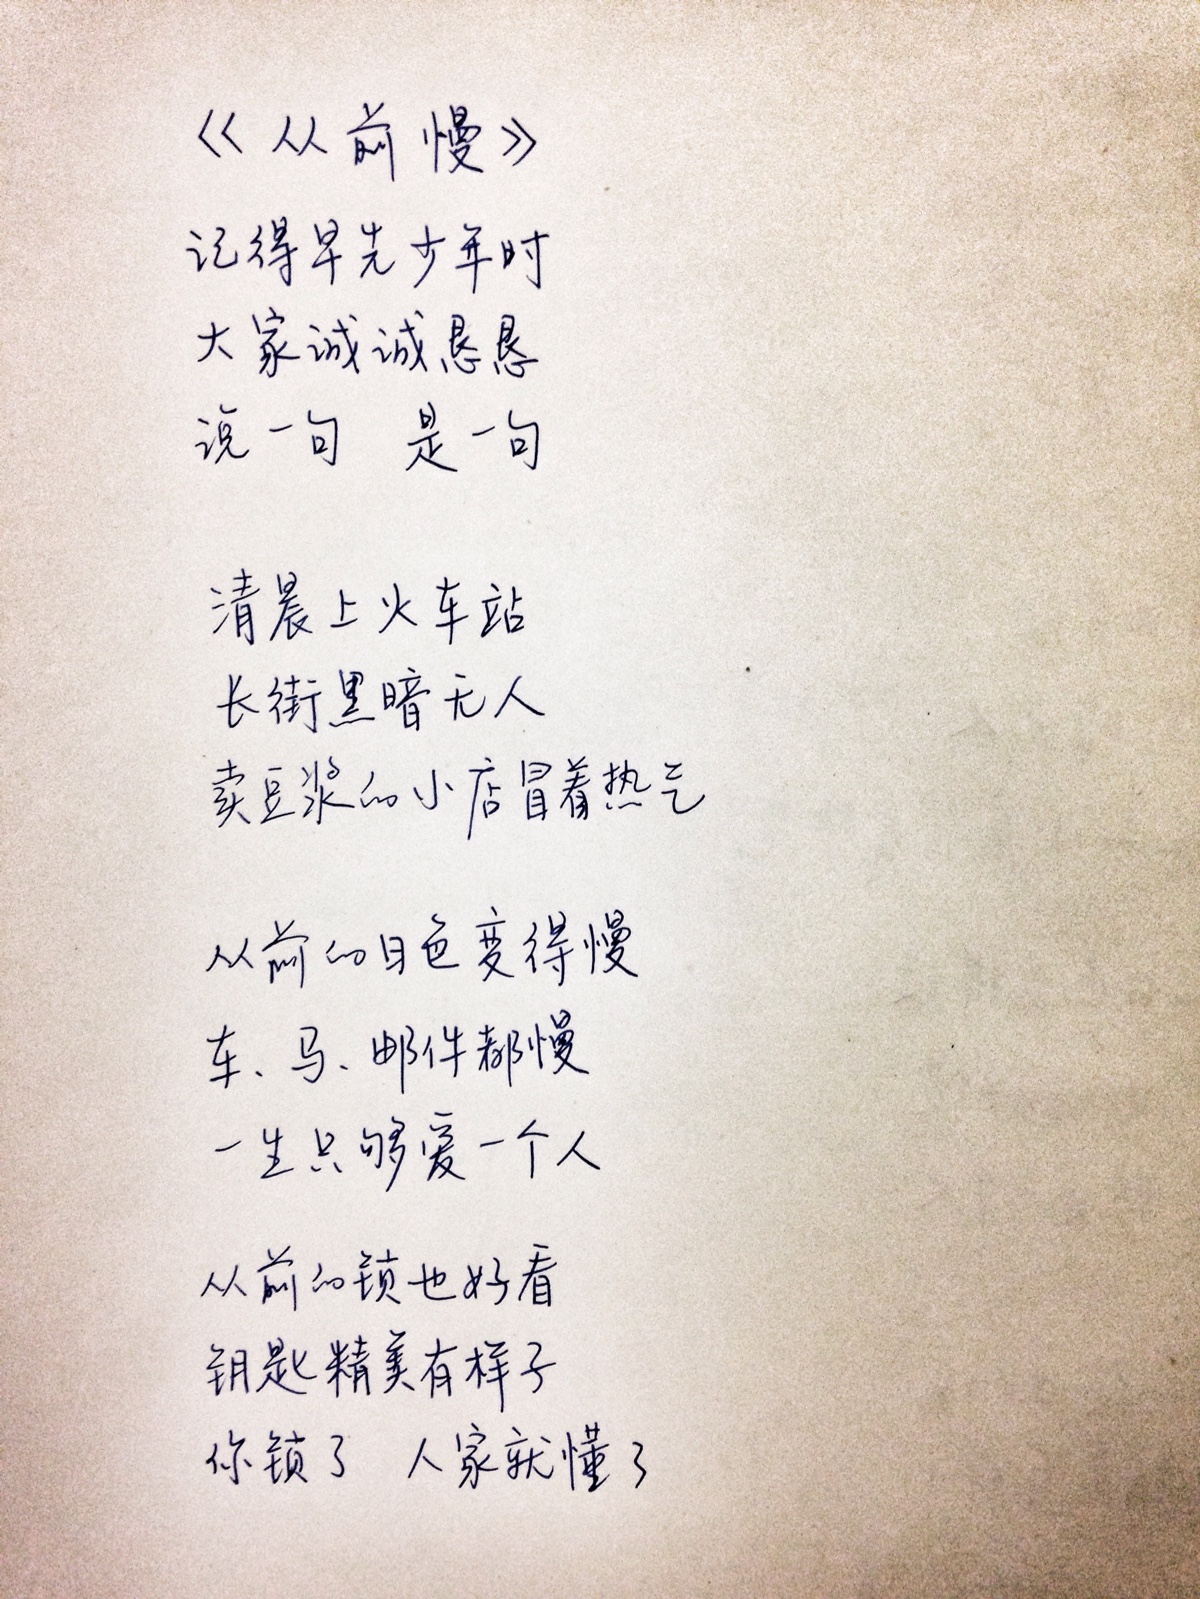 《从前慢》
记得早先少年时
大家诚诚恳恳
说一句 是一句
清晨上火车站
长街黑暗无人
卖豆浆的小店冒着热气
从前的日色变得慢
车、马、邮件都慢
一生只够爱一个人
从前的锁也好看
钥匙精美有样子
你锁了 人家就懂了